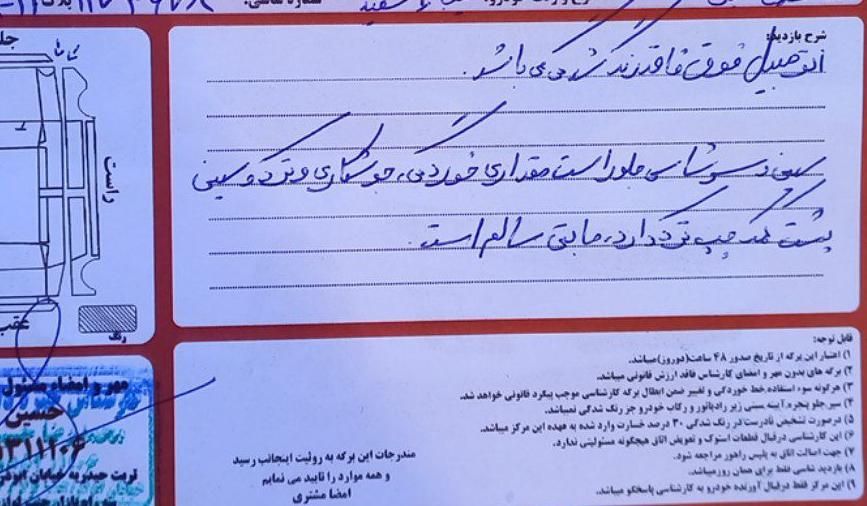 شرح بازدید:
اتومبیل فوق فاقد رنگ شدگی می باشد.
سینی و سرشاسی جلو راست مقداری خوردگی، جوشکاری و ترک و سینی
پشت کمک چپ ترک دارد، مابقی سالم است.
راست
عقب
رنگ
قابل توجه:
۱) اعتبار این برگه از تاریخ صدور ۴۸ ساعت(دوروز)میباشد.
۲) برگه های بدون مهر و امضای کارشناس فاقد ارزش قانونی میباشد.
۳) هرگونه سوء استفاده،خط خوردگی و تغییر ضمن ابطال برگه کارشناسی موجب پیگرد قانونی خواهد شد.
۴) سپر،جلو پنجره،آیینه،سینی زیر رادیاتور و رکاب خودرو جزء رنگ شدگی نمیباشد.
۵) درصورت تشخیص نادرست در رنگ شدگی ۳۰ درصد خسارت وارد شده به عهده این مرکز میباشد.
۶) این کارشناسی درقبال قطعات استوک و تعویض اتاق هیچگونه مسئولیتی ندارد.
۷) جهت اصالت اتاق به پلیس راهور مراجعه شود.
۸) بازدید شاسی فقط برای همان روزمیباشد.
۹) این مرکز فقط درقبال آورنده خودرو به کارشناسی پاسخگو میباشد.
مندرجات این برگه به روئیت اینجانب رسید
و همه موارد را تایید می نمایم
امضا مشتری
مهر و امضاء مسئول
حسین
تربت حیدریه خیابان ابوذر